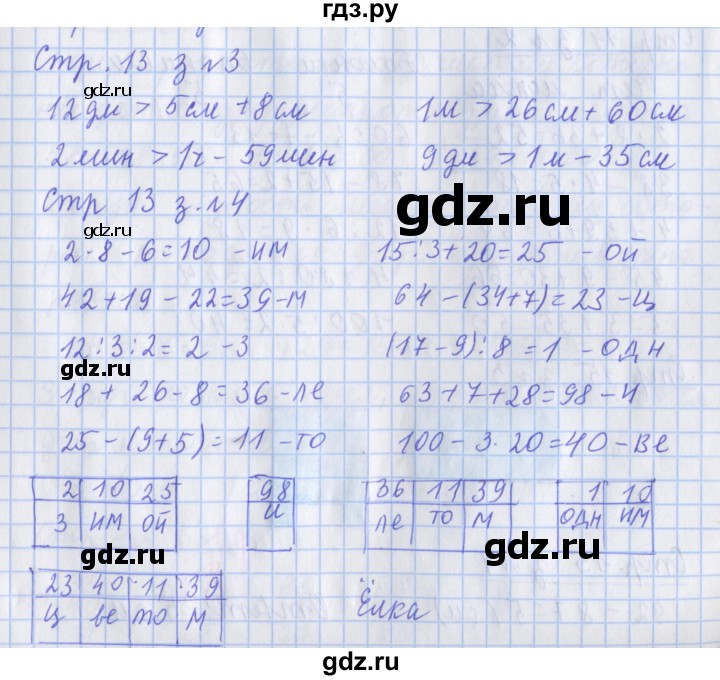 гдз.ру
Стр. 13 з №3
gdz.ru
12 дм > 5 см + 8 см 1 м > 26 см + 60 см
2 мин > 1 ч - 59 мин 9 дм > 1 м - 35 см
gdz.ru
Стр 13 з. №4
gdz.ru
2·8-6=10 -им 15:3+20=25 -ой
42+19-22=39-м 64-(34+7)=23-ц
12:3:2=2-З (17-9):8=1 -одн
gdz.ru
18+26-8=36-ле 63+7+28=98-И
25-(9+5)=11-то 100-3·20=40-ве
2 10 25 98 36 11 39 1 10
З им ой и ле то м одн им
gdz.ru
gdz.ru
23 40 11 39
ц ве то м Ёлка
gdz.ru
gdz.ru